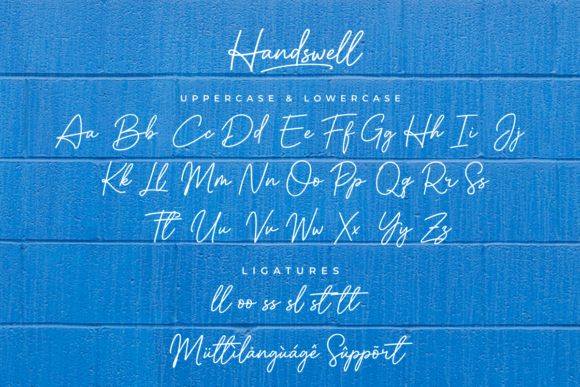 Handswell
UPPERCASE & LOWERCASE
Aa Bb Cc Dd Ee Ff Gg Hh Ii Jj
Kk Ll Mm Nn Oo Pp Qq Rr Ss
Tt Uu Vv Ww Xx Yy Zz
LIGATURES
ll oo ss sl st tt
Müttìlàngùágê Sûppõrt